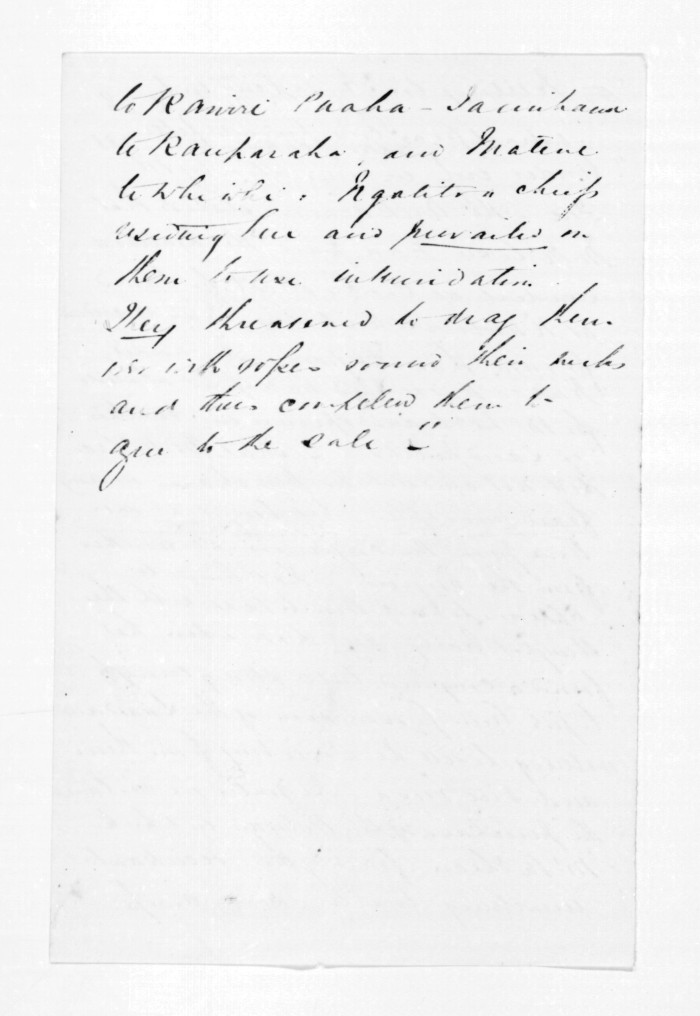 to Rawiri Puaha - Tamihana
te Rauparaha, and Matene
te whiwhi, Ngatitoa chiefs
residing here and prevailed on
them to use intimidation.
They threatened to drag them
with ropes round their necks
and thus compelled them to
agree to the sale -"